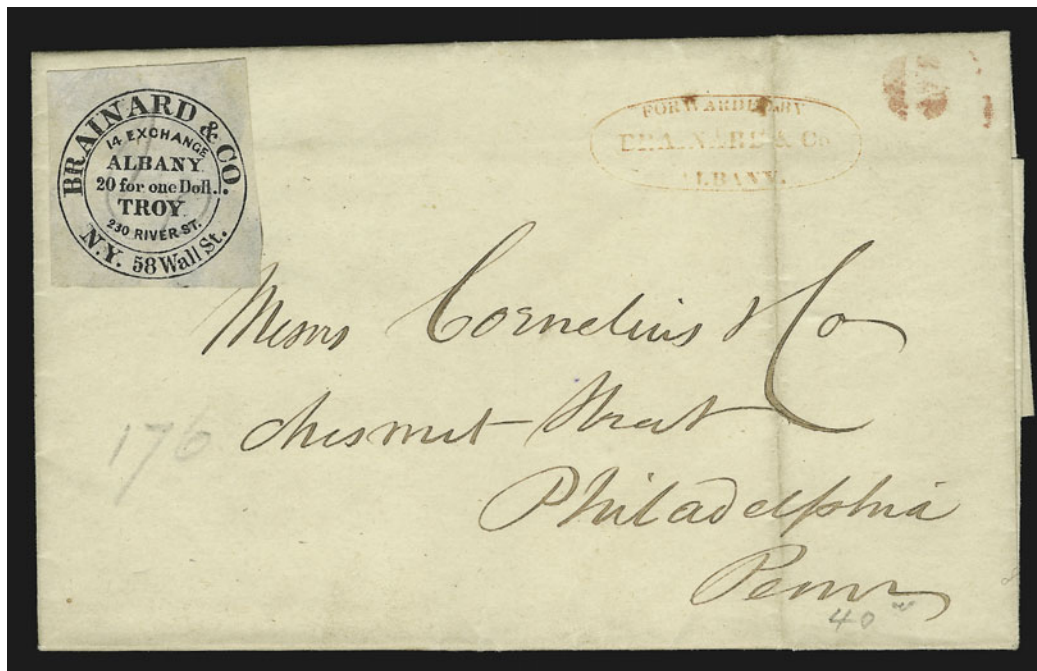 BRAINARD & CO.
14 EXCHANGE
ALBANY.
20 for one Doll.
TROY.
230 RIVER ST.
N.Y. 58 Wall St.
FORWARDED BY
BRAINARD & Co
ALBANY.
Messrs Cornelius & Co
Chesnut Street
Philadelphia
Penn
176
40